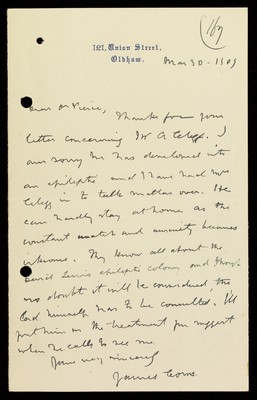 167
121, Union Street,
Oldham.
Mar 30 - 1909
Dear Dr Pierce,
Thanks for your
letter concerning Mr A Clegg. I
am sorry he has developed into
an epileptic and I have had Mrs
Clegg in to talk matters over. He
can hardly stay at home as the
constant watch and anxiety becomes
irksome. They know all about the
David Lewis epileptic colony and though
no doubt it will be considered, the
lad himself has to be consulted. I'll
put him on the treatment you suggest
when he calls to see me.
Yours very sincerely
James